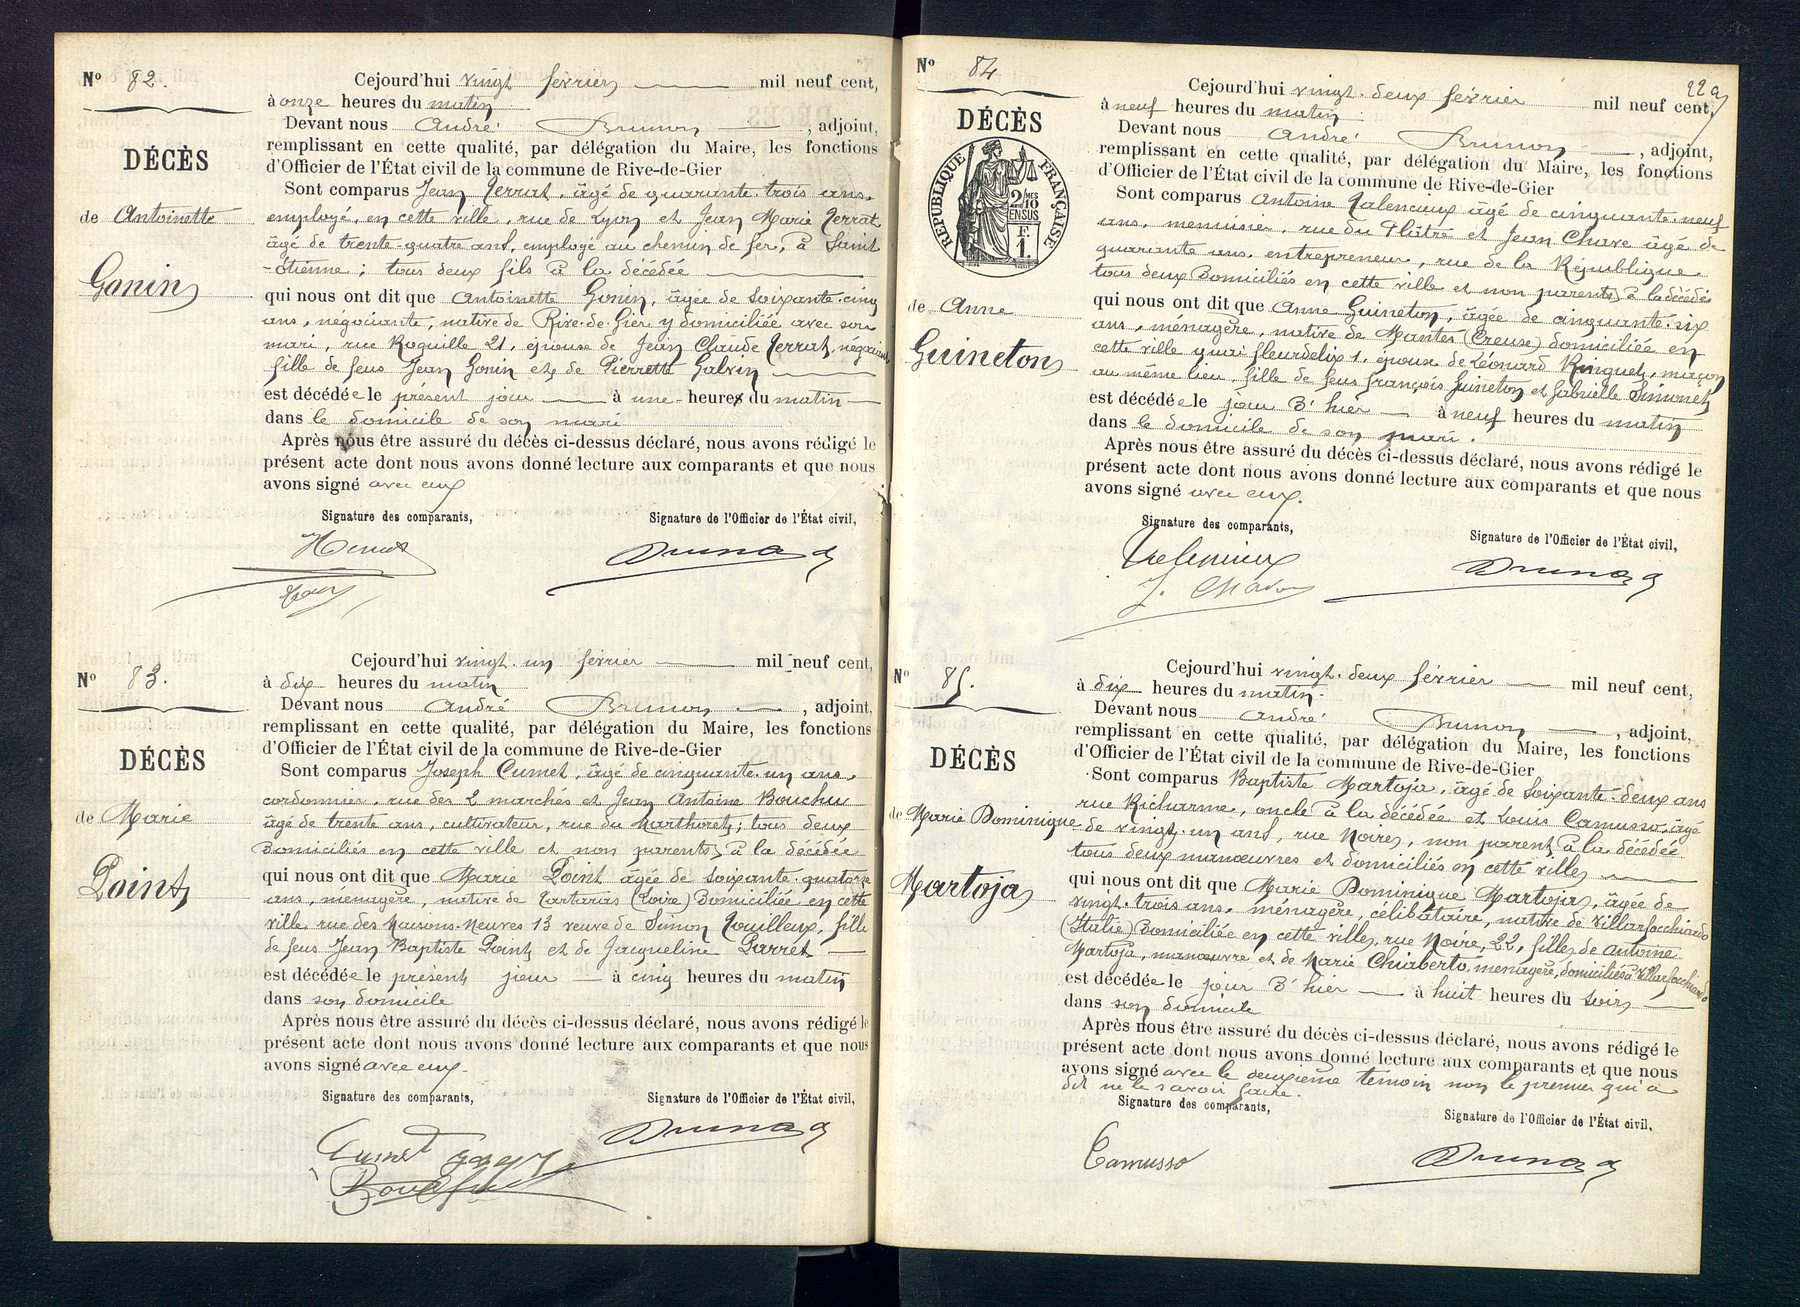 Nº 82.
DÉCÈS
de Antoinette
Gonin
Cejourd'hui vingt février mil neuf cent,
à onze heures du matin
Devant nous André Brunon, adjoint,
remplissant en cette qualité, par délégation du Maire, les fonctions
d'Officier de l'État civil de la commune de Rive-de-Gier
Sont comparus Jean Ferrat, âgé de quarante-trois ans,
employé, en cette ville, rue de Lyon et Jean Marie Ferrat
âgé de trente-quatre ans, employé au chemin de fer, à Saint
-étienne; tous deux fils à la décédée
qui nous ont dit que Antoinette Gonin, âgée de soixante-cinq
ans, négociante, native de Rive-de-Gier y domiciliée avec son
mari, rue Roquille 21, épouse de Jean Claude Ferrat, négociant
fille de feus Jean Gonin et de Pierrette Galvin
est décédée le présent jour à une heures du matin
dans le domicile de son mari
Après nous être assuré du décès ci-dessus déclaré, nous avons rédigé le
présent acte dont nous avons donné lecture aux comparants et que nous
avons signé avec eux
Signature des comparants, Signature de l'Officier de l'État civil,
Nº 83.
DÉCÈS
de Marie
Point
Cejourd'hui vingt-un février mil neuf cent,
à dix heures du matin
Devant nous André Brunon, adjoint,
remplissant en cette qualité, par délégation du Maire, les fonctions
d'Officier de l'État civil de la commune de Rive-de-Gier
Sont comparus Joseph Cumet, âgé de cinquante-un ans,
cordonnier, rue des 2 marchés et Jean Antoine Bouchu
âgé de trente ans, cultivateur, rue du Marthoret; tous deux
Domiciliés en cette ville et non parents à la décédée
qui nous ont dit que Marie Point âgée de soixante-quatorze
ans, ménagère, native de Tartaras (Loire) Domiciliée en cette
ville rue des Maisons-Neuves 13 veuve de Simon Fouilleux, fille
de feus Jean Baptiste Point et de Jacqueline Parret
est décédée le présent jour à cinq heures du matin
dans son domicile
Après nous être assuré du décès ci-dessus déclaré, nous avons rédigé le
présent acte dont nous avons donné lecture aux comparants et que nous
avons signé avec eux.
Signature des comparants, Signature de l'Officier de l'État civil,
Cumet
22
Nº 84
DÉCÈS
RÉPUBLIQUE FRANÇAISE
2/10MES
EN SUS
F.
1.
de Anne
Guineton
Cejourd'hui vingt-deux février mil neuf cent,
à neuf heures du matin
Devant nous André Brunon, adjoint,
remplissant en cette qualité, par délégation du Maire, les fonctions
d'Officier de l'État civil de la commune de Rive-de-Gier
Sont comparus Antoine Valencieux âgé de cinquante-neuf
ans, menuisier, rue du Plâtre et Jean Chave âgé de
quarante ans, entrepreneur, rue de la République
tous deux Domiciliés en cette ville et non parents à la décédée
qui nous ont dit que Anne Guineton, âgée de cinquante-six
ans, ménagère, native de Mantes (Creuse) domiciliée en
cette ville quai fleurdelix 1, épouse de Léonard Ringuet, maçon
au même lieu, fille de feus François Guineton et Gabrielle Simonet
est décédée le jour d'hier à neuf heures du matin
dans le domicile de son mari.
Après nous être assuré du décès ci-dessus déclaré, nous avons rédigé le
présent acte dont nous avons donné lecture aux comparants et que nous
avons signé avec eux.
Signature des comparants, Signature de l'Officier de l'État civil,
Nº 85.
DÉCÈS
de Marie Dominique
Martoja
Cejourd'hui vingt-deux février mil neuf cent,
à dix heures du matin
Devant nous André Brunon, adjoint,
remplissant en cette qualité, par délégation du Maire, les fonctions
d'Officier de l'État civil de la commune de Rive-de-Gier
Sont comparus Baptiste Martoja, âgé de soixante-deux ans
rue Richarme, oncle à la décédée et Louis Camusso, âgé
de vingt-un ans, rue Noire, non parent à la décédée
tous deux manœuvres et domiciliés en cette ville
qui nous ont dit que Marie Dominique Martoja, âgée de
vingt-trois ans, ménagère, célibataire, native de Villarfocchiardo
(Italie) Domiciliée en cette ville, rue Noire, 22, fille de Antoine
Martoja, manœuvre et de Marie Chiaberto, ménagère, domiciliés à Villarfocchiardo
est décédée le jour d'hier à huit heures du soir
dans son domicile
Après nous être assuré du décès ci-dessus déclaré, nous avons rédigé le
présent acte dont nous avons donné lecture aux comparants et que nous
avons signé avec le deuxième témoin non le premier qui a
dit ne le savoir faire.
Signature des comparants, Signature de l'Officier de l'État civil,
Camusso